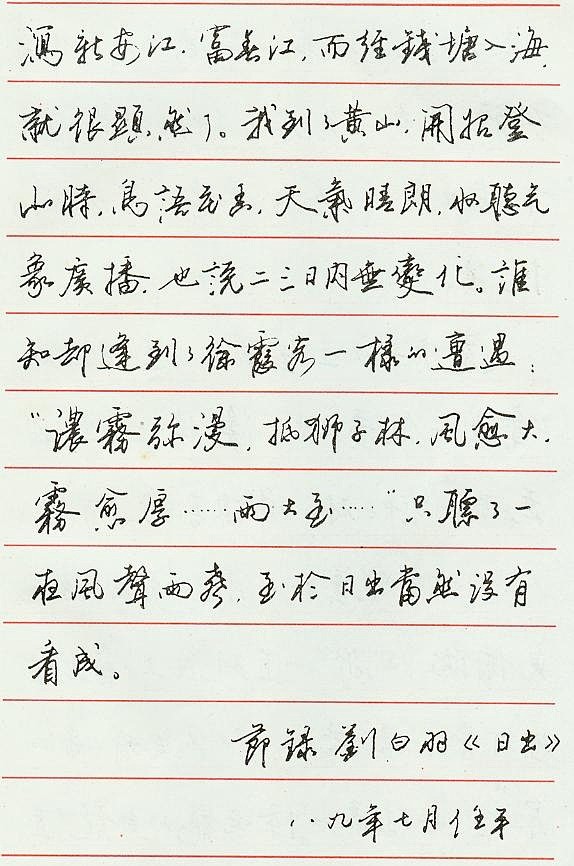 瀉新安江、富春江,而經錢塘入海,
就很顯然了。我到了黃山,開始登
山時,鳥語花香,天氣晴朗,收聽氣
象廣播,也說二三日內無變化。誰
知却逢到了徐霞客一樣的遭遇:
“濃霧弥漫,抵狮子林,風愈大,
霧愈厚……雨大至……”只聽了一
夜風聲雨聲,至於日出當然沒有
看成。
節録劉白羽《日出》
八九年七月任平